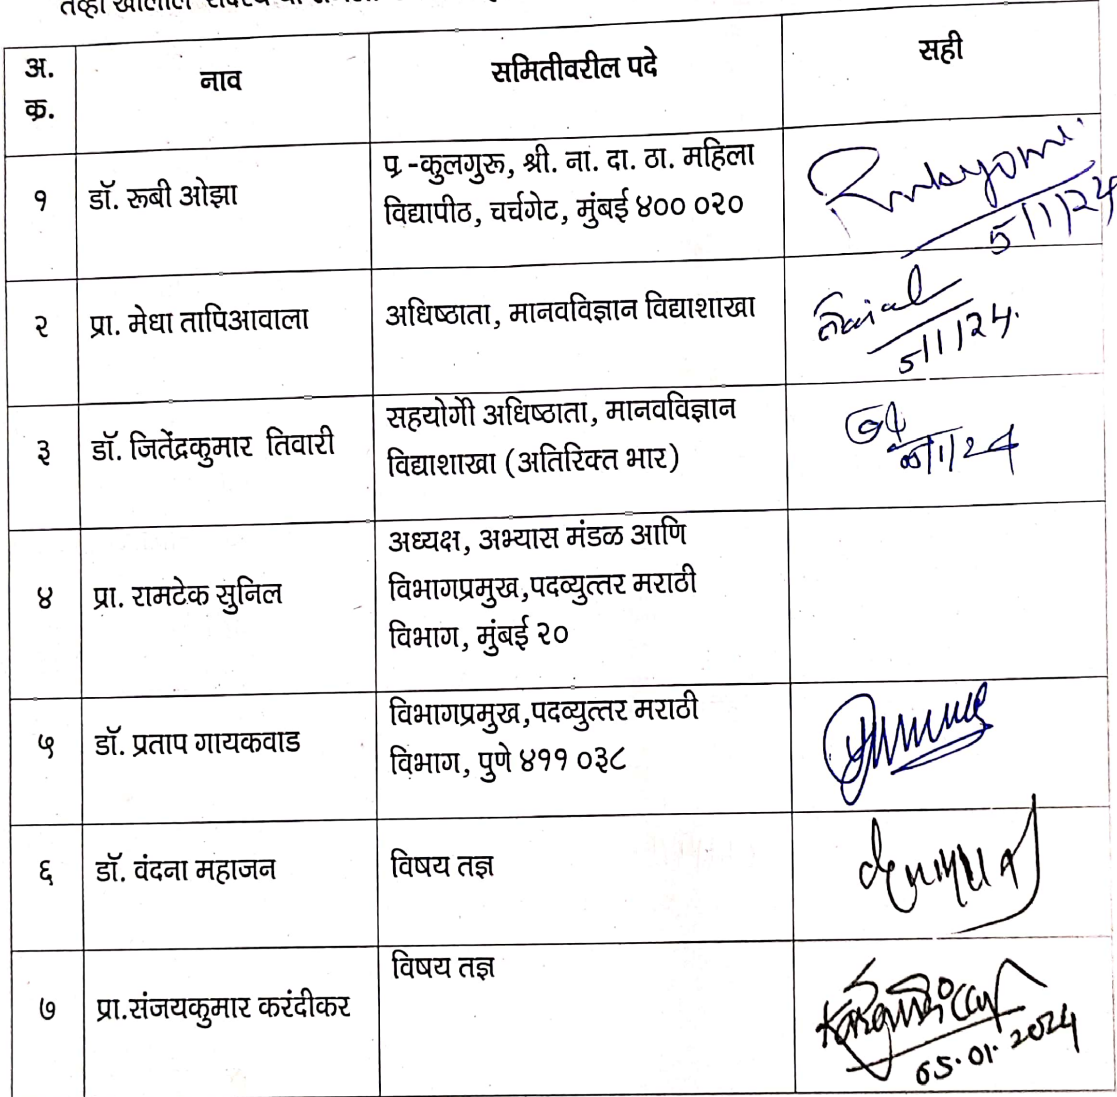 अ.
क्र.
नाव
समितीवरील पदे
सही
१
डॉ. रूबी ओझा
प्र -कुलगुरू, श्री. ना. दा. ठा. महिला
विद्यापीठ, चर्चगेट, मुंबई ४०० ०२०
5/1/24
२
प्रा. मेधा तापिआवाला
अधिष्ठाता, मानवविज्ञान विद्याशाखा
5/1/24.
३
डॉ. जितेंद्रकुमार तिवारी
सहयोगी अधिष्ठाता, मानवविज्ञान
विद्याशाखा (अतिरिक्त भार)
४
प्रा. रामटेक सुनिल
अध्यक्ष, अभ्यास मंडळ आणि
विभागप्रमुख,पदव्युत्तर मराठी
विभाग, मुंबई २०
५
डॉ. प्रताप गायकवाड
विभागप्रमुख,पदव्युत्तर मराठी
विभाग, पुणे ४११ ०३८
६
डॉ. वंदना महाजन
विषय तज्ञ
७
प्रा.संजयकुमार करंदीकर
विषय तज्ञ
05.01.2024